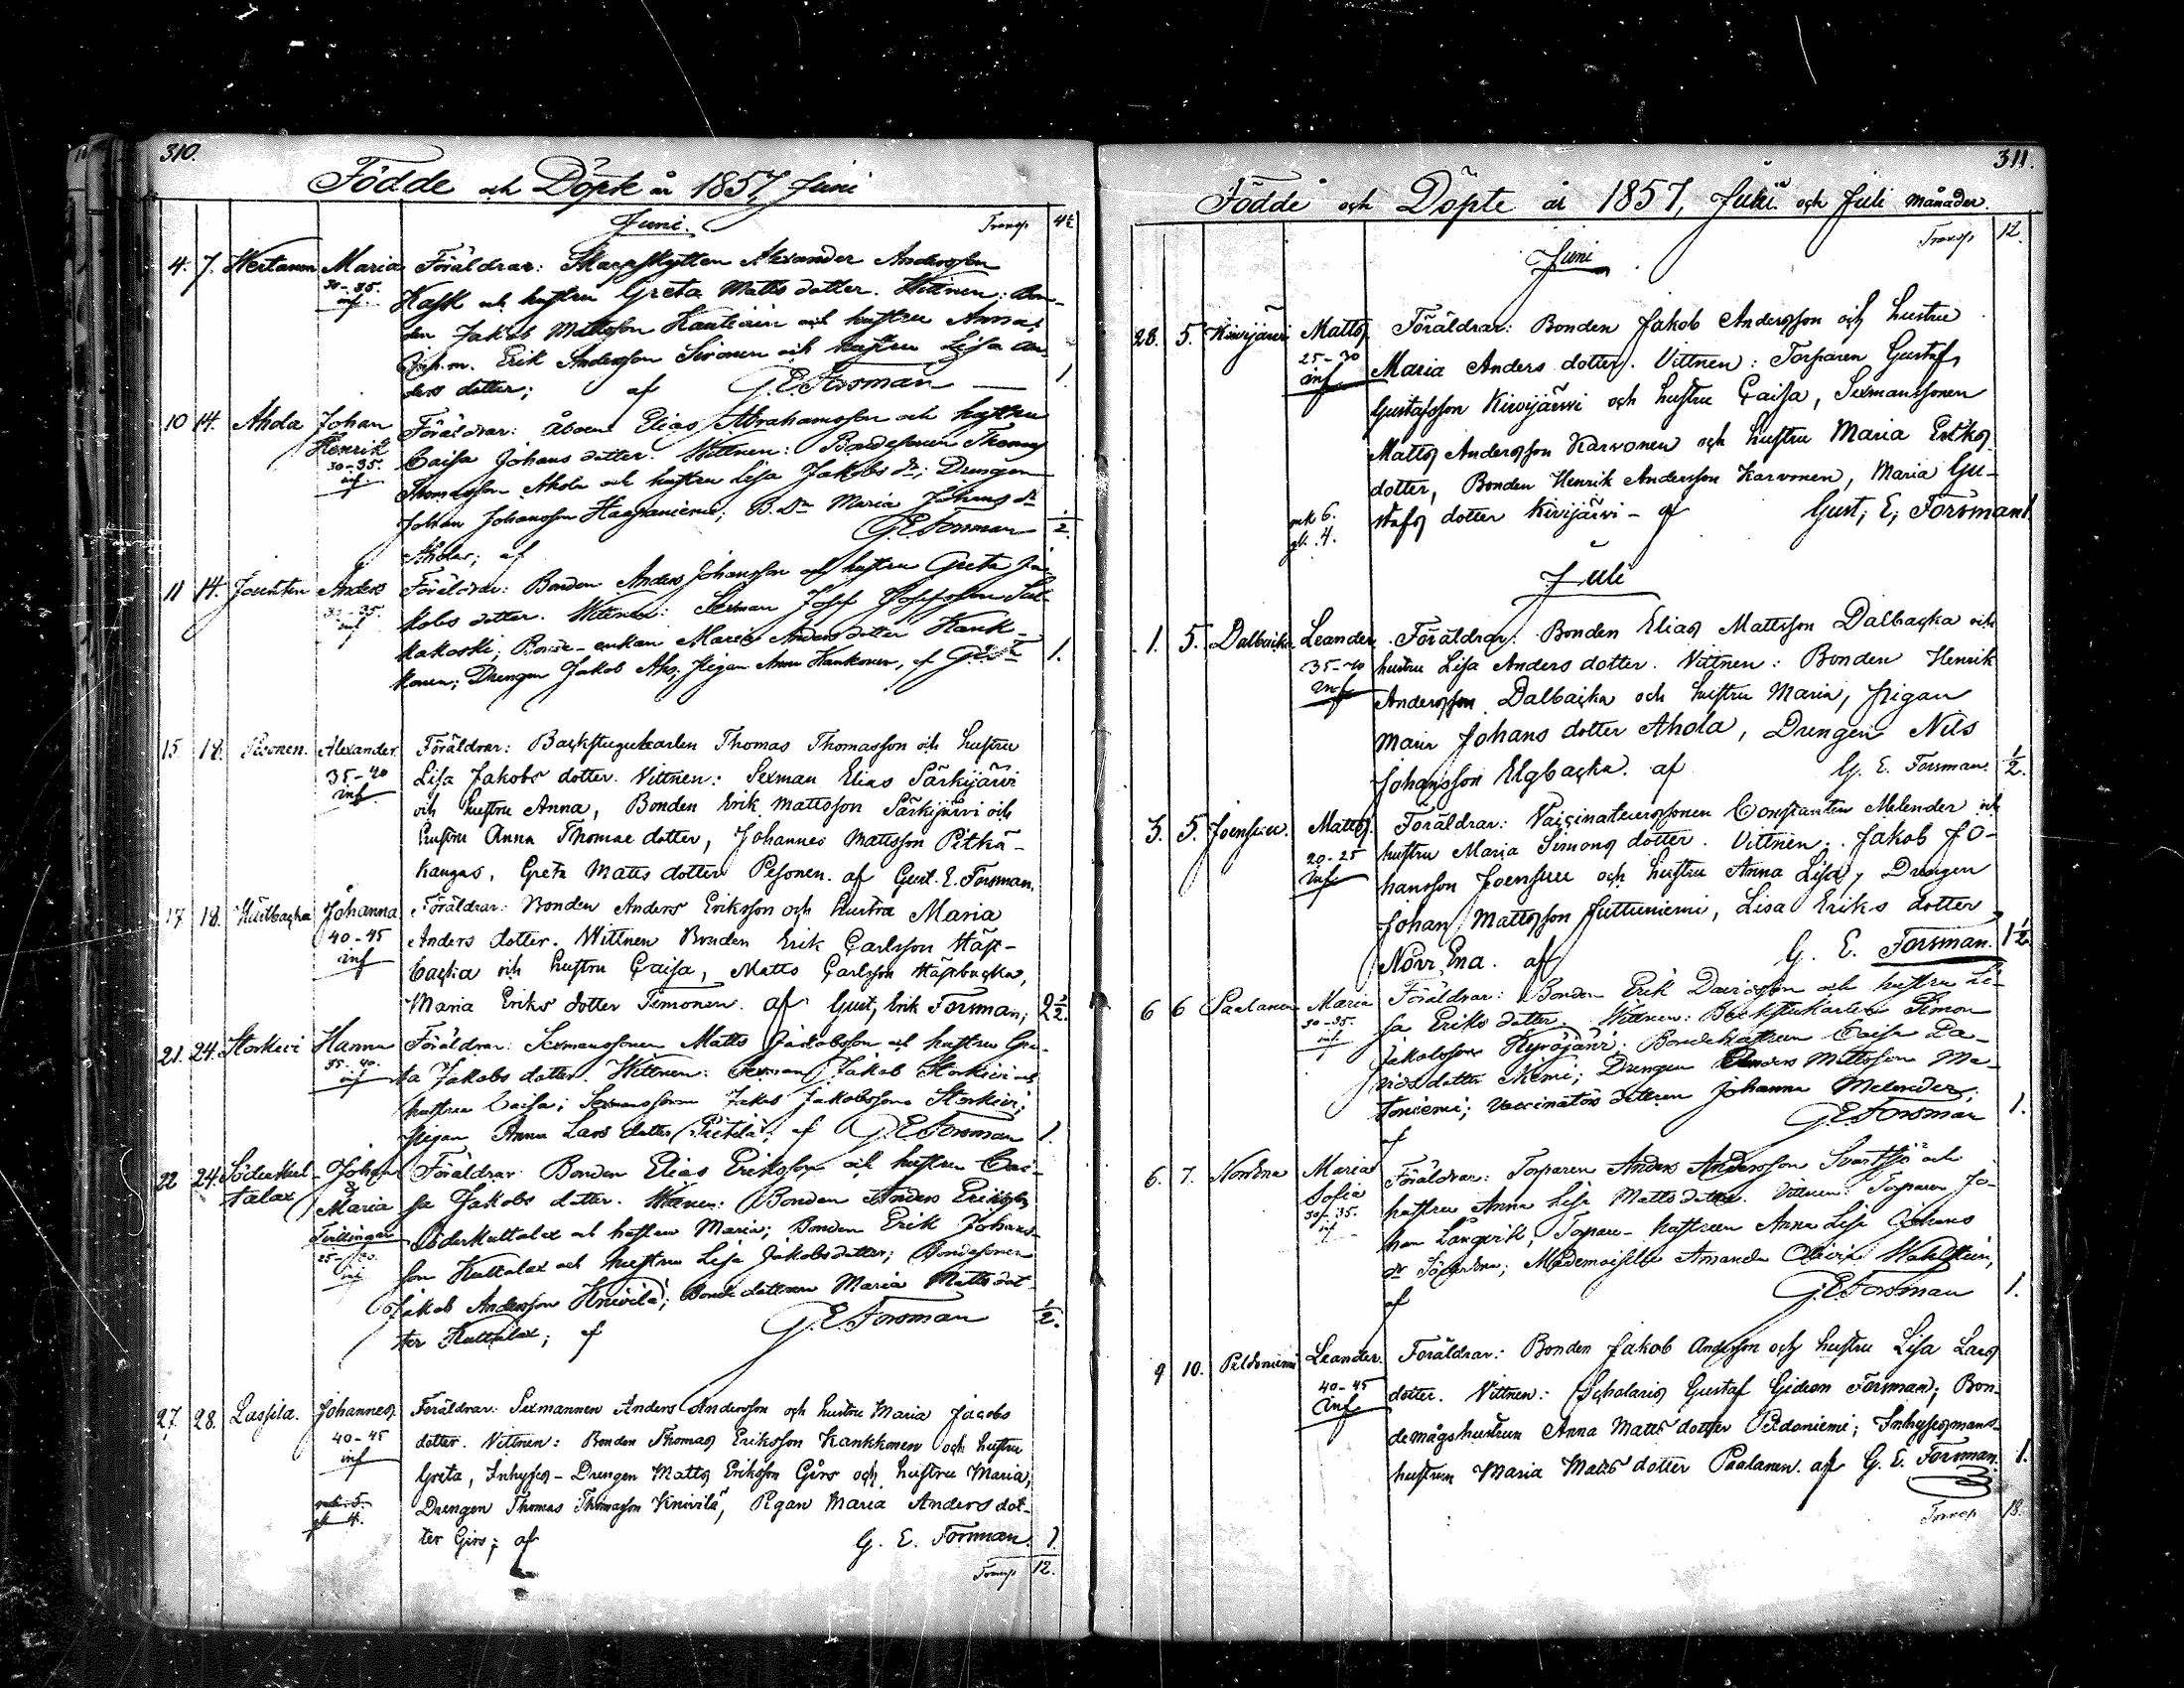 310.
Födde och Döpte år 1857, Juni
Juni. Transp 4½
4. 7. Hertanen Maria Föräldrar: Skarpskytten Alexander Andersson
30-35. inf. Kask och hustru Greta Matts dotter. Vittnen: Bon-
den Jakob Mattsson Kautiain och hustru Anna,
Erik Andersson Sironen och hustru Lisa An-
ders dotter; af G. E. Forsman 1.
10 14. Ahola Johan Föräldrar: Åboen Elias Abrahamsson och hustru
Henrik Caisa Johans dotter. Vittnen: Bondesonen Thomas
30-35. inf. Thomasson Ahola och hustru Lisa Jakobs dr; Drengen
Johan Johansson Haapaniemi; B. Dn Maria Johans dr
Ahola; af G. E. Forsman ½.
11 14. Jouhten Anders Föräldrar: Bonden Anders Johansson och hustru Greta Ja-
30-35. inf kobs dotter. Vittnen: Sexman Josef Josefsson Sul-
kakoski; Bonde-enkan Maria Anders dotter Kank-
konen; Drengen Jakob Aho; Pigan Anna Kankonen, af G. E. Fn 1.
15 18. Pesonen. Alexander Föräldrar: Backstugukarlen Thomas Thomasson och hustru
35-40 inf Lisa Jakobs dotter. Vittnen: Sexman Elias Särkijärvi
och hustru Anna, Bonden Erik Mattsson Särkijärvi och
hustru Anna Thomae dotter, Johannes Mattsson Pitkä-
kangas, Greta Matts dotter Pesonen. af Gust. E. Forsman.
17 18. Johanna Föräldrar: Bonden Anders Eriksson och hustru Maria
40-45 inf Anders dotter. Vittnen Bonden Erik Carlsson Häst-
backa och hustru Caisa, Matts Carlsson Hästbacka,
Maria Eriks dotter Timonen. af Gust, Erik Forsman; 2½.
21. 24. Storkivi Hanna Föräldrar: Sexmanssonen Matts Jakobsson och hustru Gre-
35-40. inf ta Jakobs dotter. Vittnen: Sexman Jakob Storkivi och
hustru Caisa; Sexmanssonen Jakob Jakobsson Storkivi;
Pigan Anna Lars dotter Pietilä; af G. E. Forsman 1.
22 24. Söderkul- Johan Föräldrar: Bonden Elias Eriksson och hustru Cai-
talax & Maria sa Jakobs dotter. Vittnen: Bonden Anders Eriksson
Tvillingar Söderkultalax och hustru Maria; Bonden Erik Johans-
25-30. inf son Kultalax och hustru Lisa Jakobsdotter; Bondesonen
Jakob Andersson Knivilä; Bondedottren Maria Matts dot-
ter Kultalax; af G. E. Forsman ½.
27. 28. Lassila. Johannes Föräldrar: Sexmannen Anders Andersson och hustru Maria Jacobs
40-45 inf dotter. Vittnen: Bonden Thomas Eriksson Kankkonen och hustru
Greta, Inhyses-Drengen Matts Eriksson Girs och hustru Maria,
mk. 5. Drengen Thomas Thomasson Knivilä, Pigan Maria Anders dot-
qk 4. ter Girs; af G. E. Forsman. 1
Transp 12.
311.
Födde och Döpte år 1857, Juni och Juli månader.
Transp 12.
Juni
28. 5. Kivijärvi Matts Föräldrar: Bonden Jakob Andersson och hustru
25-30 inf Maria Anders dotter. Vittnen: Torparen Gustaf
Gustafsson Kivijärvi och hustru Caisa, Sexmanssonen
Matts Andersson Karvonen och hustru Maria Eriks
dotter, Bonden Henrik Andersson Karvonen, Maria Gu-
mk 6. stafs dotter Kivijärvi - af Gust, E, Forsman 1.
qk. 4.
Juli
1. 5. Dalbacka Leander Föräldrar: Bonden Elias Mattsson Dalbacka och
35-40 inf hustru Lisa Anders dotter. Vittnen: Bonden Henrik
Andersson Dalbacka och hustru Maria, Pigan
Maria Johans dotter Ahola, Drengen Nils
Johansson Elgbacka. af G. E. Forsman. ½.
3. 5. Joensuu. Matts. Föräldrar: Vaccinateurssonen Constantin Melender och
20-25 inf hustru Maria Simons dotter. Vittnen: Jakob Jo-
hansson Joensuu och hustru Anna Lisa, Drengen
Johan Mattsson Juttuniemi, Lisa Eriks dotter
Norr Ena. af G. E. Forsman. 1½
6 6 Paalanen Maria Föräldrar: Bonden Erik Davidsson och hustru Li-
30-35. inf sa Eriks dotter. Vittnen: Backstukarlen Simon
Jakobsson Kyröjärvi. Bondehustrun Caisa Da-
vids dotter Niemi; Drengen Anders Mattsson Ma-
toniemi; Vaccinators dottren Johanna Melender;
af G. E. Forsman 1.
6. 7. Norrena Maria Föräldrar: Torparen Anders Andersson Svartsjö och
Sofia hustru Anna Lisa Matts dotter. Vittnen: Torparen Jo-
30-35. inf han Långvik, Torpare-hustrun Anna Lisa Johans
dr Söderena; Mademoiselle Amanda Olivia Wahlstein,
af G. E. Forsman 1.
9 10. Peldoniemi Leander. Föräldrar: Bonden Jakob Andersson och hustru Lisa Lars
40-45 inf dotter. Vittnen: Scholaris Gustaf Gideon Forsman; Bon-
demågshustrun Anna Matts dotter Peldoniemi; Inhysesmans-
hustrun Maria Matts dotter Paalanen. af G. E. Forsman. 1.
Transp 18.